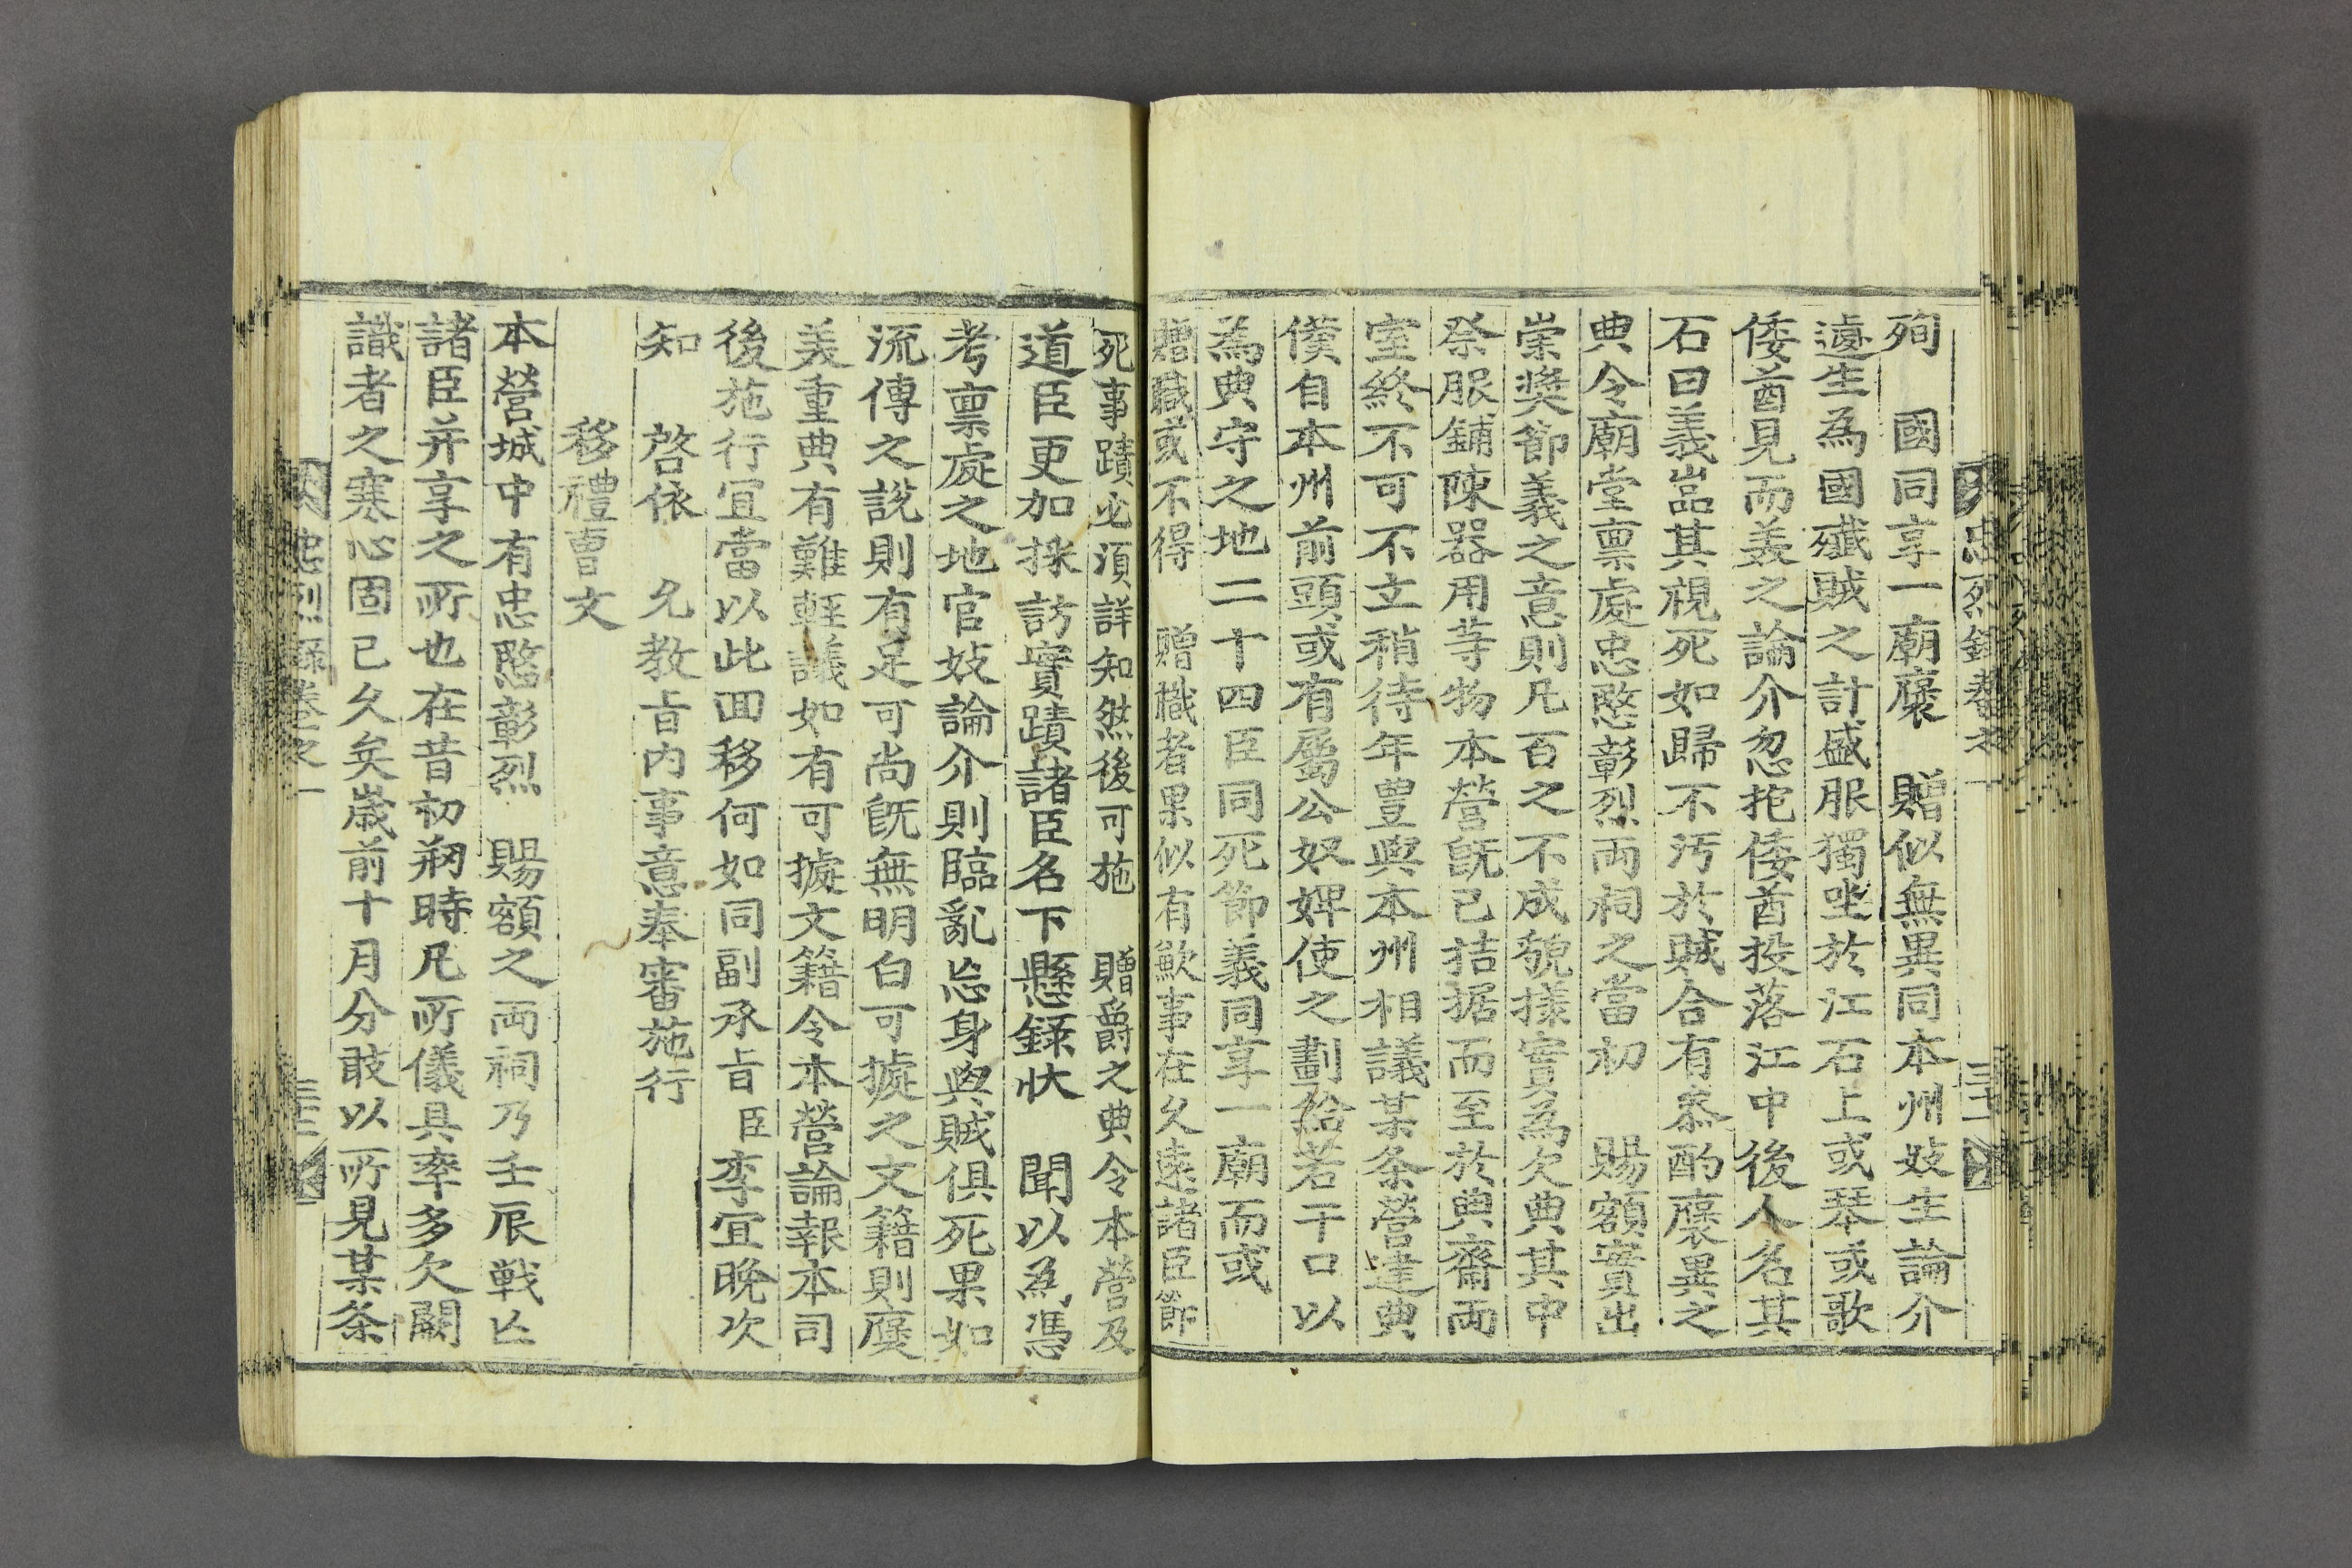 忠烈錄卷之一
三十一
殉　國同享一廟褒　贈似無異同本州妓生論介
遑生為國殲賊之計盛服獨坐於江石上或琴或歌
倭酋見而美之論介忽抱倭酋投落江中後人名其
石曰義嵓其視死如歸不汚於賊合有叅酌褒異之
典令廟堂禀處忠愍彰烈両祠之當初　賜額實出
崇奬節義之意則凡百之不成貌㨾實為欠典其中
祭服鋪陳器用等物本營旣已拮据而至於典齋両
室終不可不立稍待年豊與本州相議某条營建典
僕自本州前頭或有屬公奴婢使之劃給若干口以
為典守之地二十四臣同死節義同享一廟而或
贈職或不得　贈職者果似有歉事在久遠諸臣節
死事蹟必湏詳知然後可施　贈爵之典令本營及
道臣更加採訪實蹟諸臣名下懸錄狀　聞以為憑
考禀處之地官妓論介則臨亂忘身與賊俱死果如
流傳之說則有足可尚旣無明白可㨿之文籍則褒
美重典有難輕議如有可㨿文籍令本營論報本司
後施行宜當以此回移何如同副承旨臣李宜晚次
知　啓依　允教旨內事意奉審施行
移禮曹文
本營城中有忠愍彰烈　賜額之両祠乃壬辰戦亡
諸臣并享之所也在昔初刱時凡所儀具率多欠闕
識者之寒心固已久矣歲前十月分敢以所見某条
忠烈錄卷之一
三十二